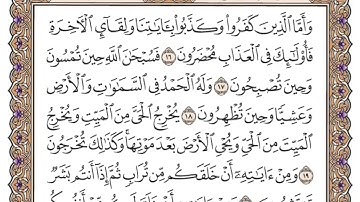 وَأَمَّا ٱلَّذِينَ كَفَرُوا۟ وَكَذَّبُوا۟ بِـَٔايَٰتِنَا وَلِقَآئِ ٱلْـَٔاخِرَةِ
فَأُو۟لَٰٓئِكَ فِى ٱلْعَذَابِ مُحْضَرُونَ ١٦ فَسُبْحَٰنَ ٱللَّهِ حِينَ تُمْسُونَ
وَحِينَ تُصْبِحُونَ ١٧ وَلَهُ ٱلْحَمْدُ فِى ٱلسَّمَٰوَٰتِ وَٱلْأَرْضِ
وَعَشِيًّا وَحِينَ تُظْهِرُونَ ١٨ يُخْرِجُ ٱلْحَىَّ مِنَ ٱلْمَيِّتِ وَيُخْرِجُ
ٱلْمَيِّتَ مِنَ ٱلْحَىِّ وَيُحْىِ ٱلْأَرْضَ بَعْدَ مَوْتِهَا وَكَذَٰلِكَ تُخْرَجُونَ
١٩ وَمِنْ ءَايَٰتِهِۦٓ أَنْ خَلَقَكُم مِّن تُرَابٍ ثُمَّ إِذَآ أَنتُم بَشَرٌ